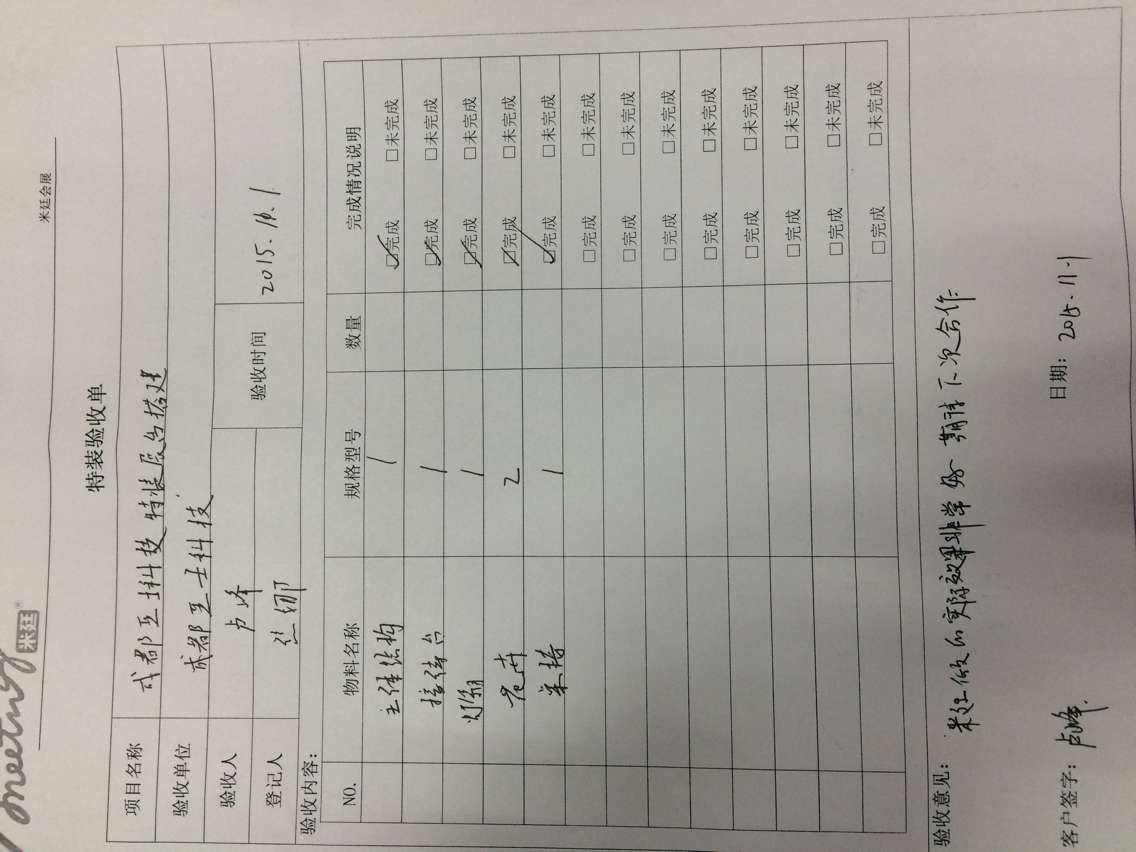 meeting 米廷
米廷会展
特装验收单
项目名称 成都互土科技特装展台搭建
验收单位 成都互土科技
验收人 卢峰 验收时间 2015.11.1
登记人 娜
验收内容:
NO. 物料名称 规格型号 数量 完成情况说明
主体结构 1 ☑完成 □未完成
接待台 1 ☑完成 □未完成
灯箱 1 ☑完成 □未完成
花卉 2 ☑完成 □未完成
桌椅 1 ☑完成 □未完成
□完成 □未完成
□完成 □未完成
□完成 □未完成
□完成 □未完成
□完成 □未完成
□完成 □未完成
□完成 □未完成
□完成 □未完成
验收意见: 米廷做的实际效果非常好 期待下次合作
客户签字: 卢峰 日期: 2015.11.1